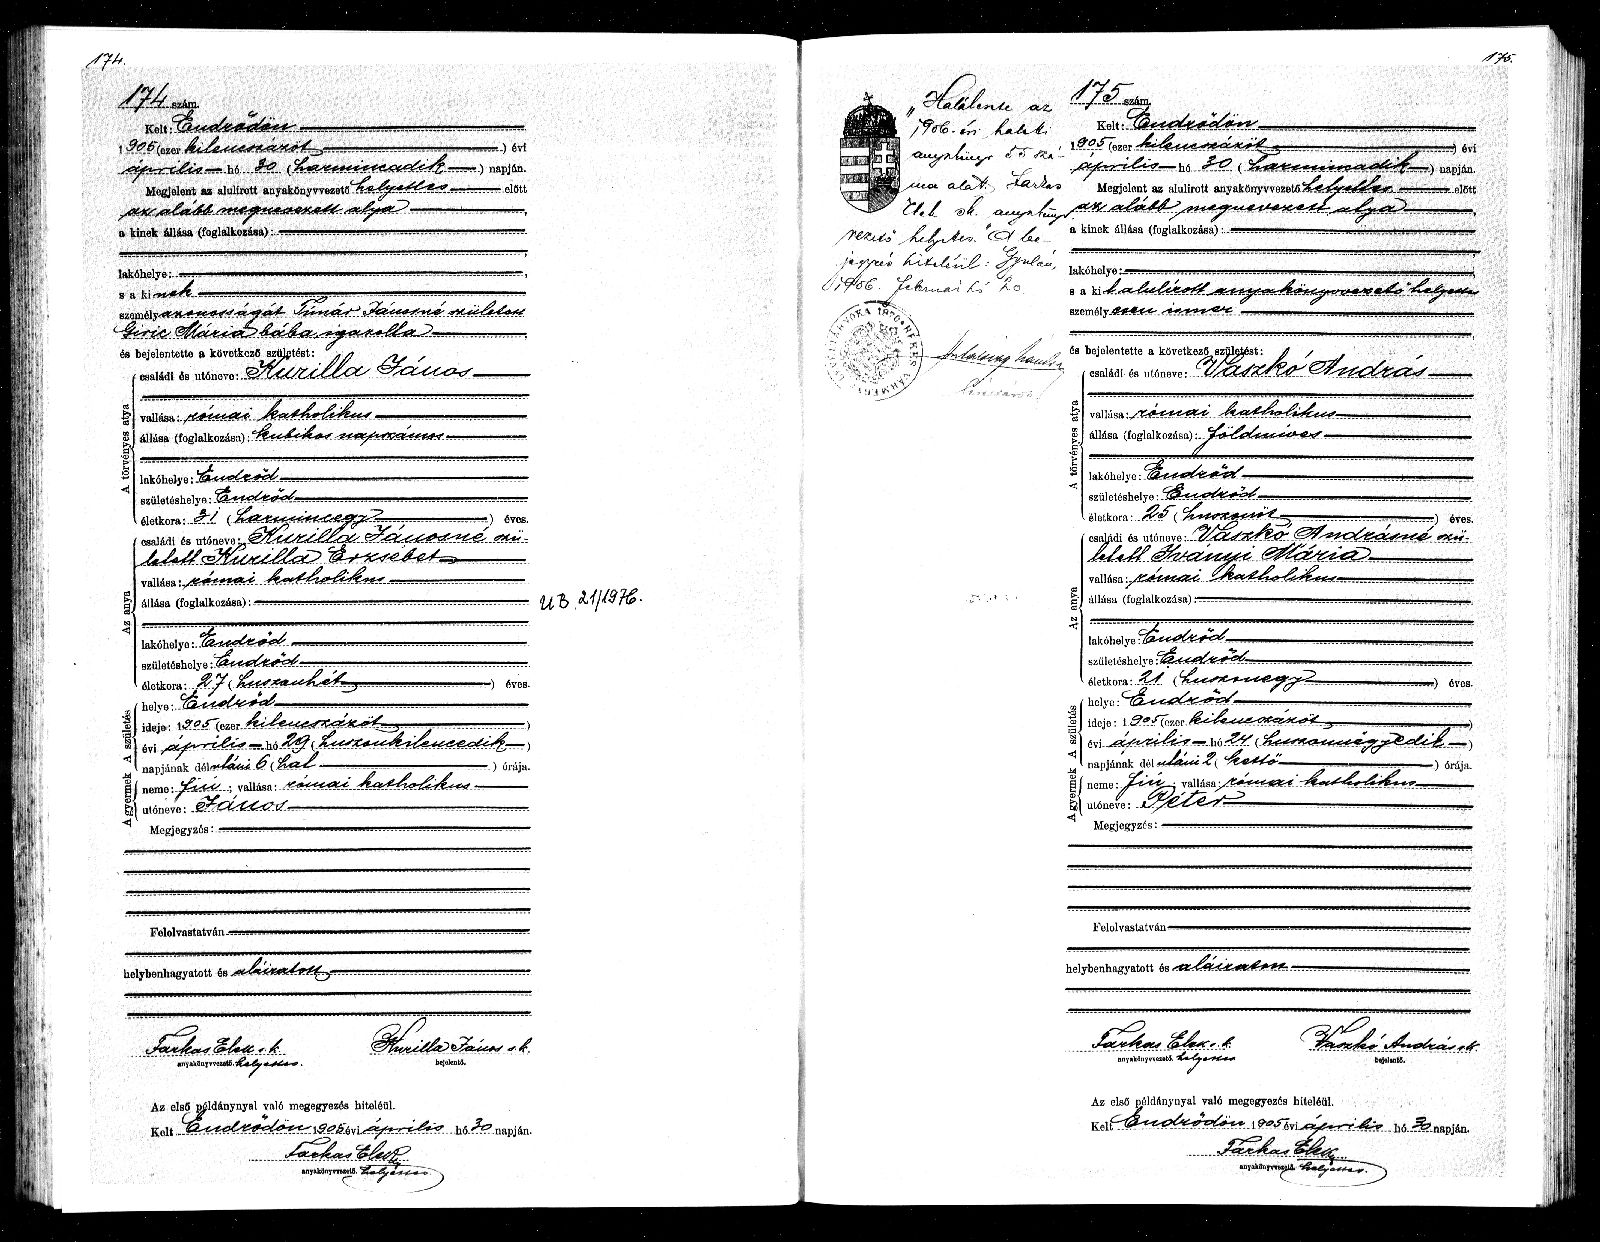 174.
174 szám.
Kelt: Endrődön
1905 (ezer kilencszázöt) évi
április hó 30 (harmincadik) napján.
Megjelent az alulirott anyakönyvvezető helyettes előtt
az alább megnevezett atya,
a kinek állása (foglalkozása):
lakóhelye:
s a kinek
személyazonosságát Tímár Jánosné született
Giric Mária bába igazolta
és bejelentette a következő születést:
A törvényes atya
családi és utóneve: Kurilla János
vallása: római katholikus
állása (foglalkozása): kubikos napszámos
lakóhelye: Endrőd
születéshelye: Endrőd
életkora: 31 (harmincegy) éves.
Az anya
családi és utóneve: Kurilla Jánosné szü-
letett Kurilla Erzsébet
vallása: római katholikus
állása (foglalkozása):
lakóhelye: Endrőd
születéshelye: Endrőd
életkora: 27 (huszonhét) éves.
A születés
helye: Endrőd
ideje: 1905 (ezer kilencszázöt)
évi április hó 29 (huszonkilencedik)
napjának délutáni 6 (hat) órája.
A gyermek
neme: fiú; vallása: római katholikus
utóneve: János
Megjegyzés:
Felolvastatván
helybenhagyatott és aláiratott
Farkas Elek s.k. Kurilla János s.k.
anyakönyvvezető. helyettes. bejelentő.
Az első példánynyal való megegyezés hiteléül.
Kelt Endrődön 1905 évi április hó 30 napján.
Farkas Elek
anyakönyvvezető. helyettes
UB 21/1976.
175.
"Halálente az
1906. évi halotti
anyakönyv 55 szá-
ma alatt. Farkas
Elek sk. anyakönyv
vezető helyettes." A be
jegyzés hiteléül: Gyulán,
1906. február hó 20.
175 szám.
Kelt: Endrődön
1905 (ezer kilencszázöt) évi
április hó 30 (harmincadik) napján.
Megjelent az alulirott anyakönyvvezető helyettes előtt
az alább megnevezett atya,
a kinek állása (foglalkozása):
lakóhelye:
s a kit alulírott anyakönyvvezető helyettes
személyesen ismer
és bejelentette a következő születést:
A törvényes atya
családi és utóneve: Vaszkó András
vallása: római katholikus
állása (foglalkozása): földmíves
lakóhelye: Endrőd
születéshelye: Endrőd
életkora: 25 (huszonöt) éves.
Az anya
családi és utóneve: Vaszkó Andrásné szü-
letett Iványi Mária
vallása: római katholikus
állása (foglalkozása):
lakóhelye: Endrőd
születéshelye: Endrőd
életkora: 21 (huszonegy) éves.
A születés
helye: Endrőd
ideje: 1905 (ezer kilencszázöt)
évi április hó 24 (huszonnégyedik)
napjának délutáni 2 (kettő) órája.
A gyermek
neme: fiú; vallása: római katholikus
utóneve: Péter
Megjegyzés:
Felolvastatván
helybenhagyatott és aláiratott
Farkas Elek s.k. Vaszkó András s.k.
anyakönyvvezető. helyettes bejelentő.
Az első példánynyal való megegyezés hiteléül.
Kelt Endrődön 1905 évi április hó 30 napján.
Farkas Elek
anyakönyvvezető. helyettes.